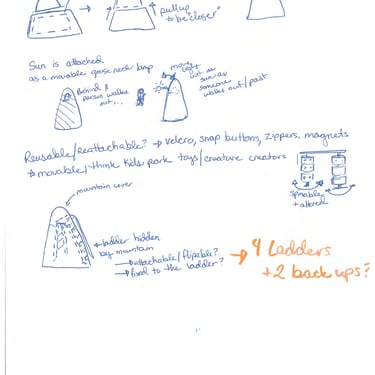 → pull up
to be "closer"
→ Sun is attached
as a movable gooseneck lamp
Behind &
person walks
out...
move
light
out as
sun as
someone
walks out/past
Reusable/Reattachable? → velcro, snap buttons, zippers, magnets
movable/think kids park toys/creature creators
spinable
+ altered
mountain cover
ladder hidden
by mountain
→ attachable/flipable?
→ fixed to the ladder?
→ 4 ladders
+ 2 back ups?